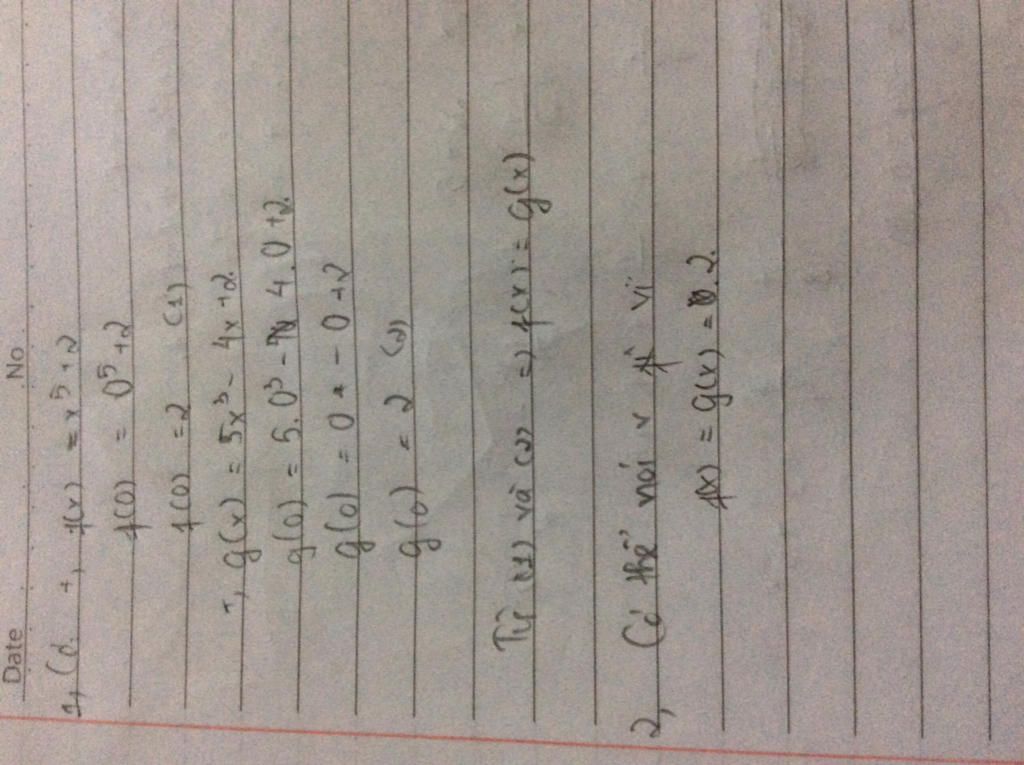 Date No
1, Có. +, f(x) = x⁵ + 2
f(0) = 0⁵ + 2
f(0) = 2 (1)
+, g(x) = 5x³ - 4x + 2.
g(0) = 5. 0³ - 4. 0 + 2.
g(0) = 0 - 0 + 2
g(0) = 2 (2)
Từ (1) và (2) => f(x) = g(x)
2, Có thể nói v vì
f(x) = g(x) = 2.